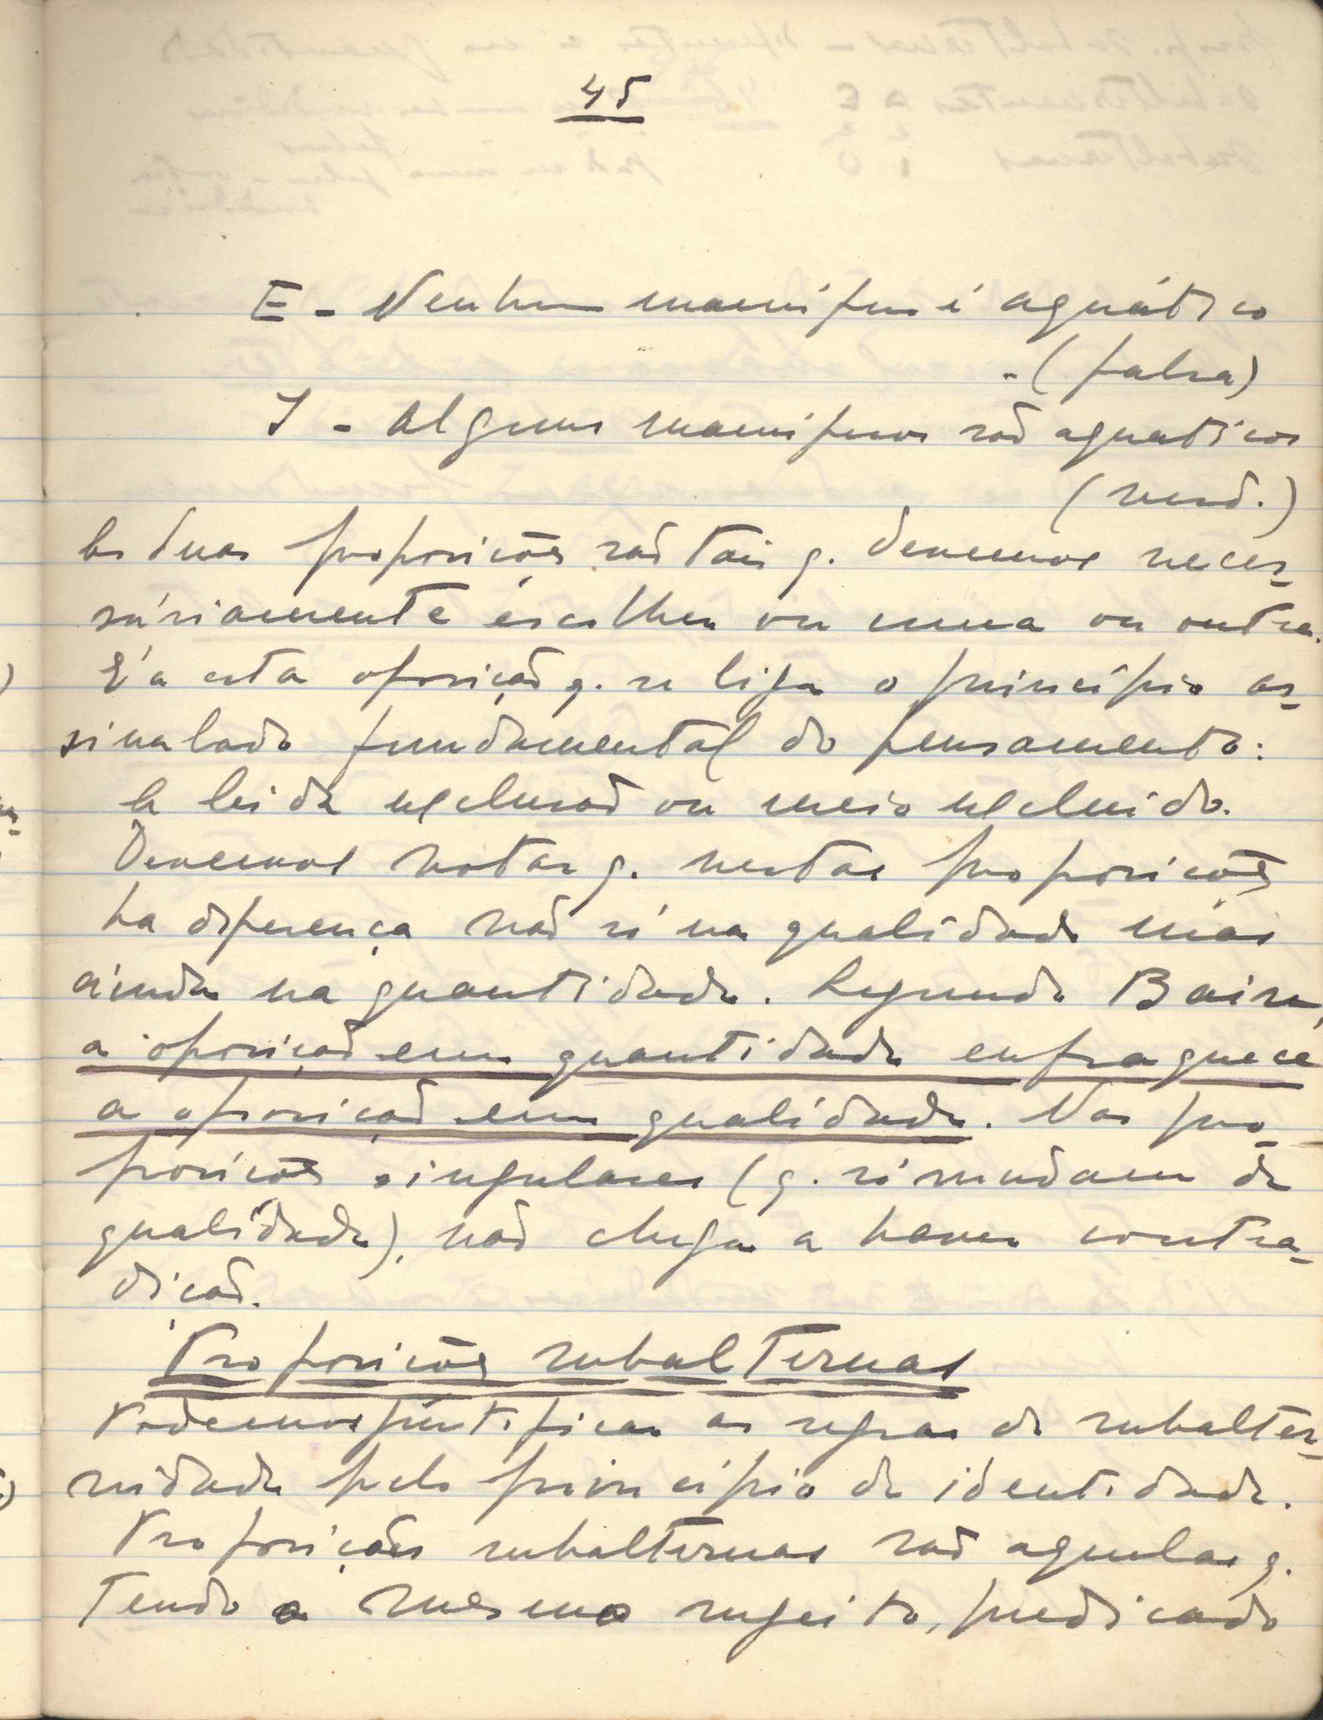 45
E - Nenhum mamífero é aquático
- (falsa)
I - Alguns mamiferos são aquaticos
(verd.)
As duas proposições são tais q. devemos neces-
sáriamente escolher ou uma ou outra.
É a esta oposição q. se liga o princípio as-
sinalado fundamental do pensamento:
A lei da exclusão ou meio excluido.
Devemos notar q. nestas proposições
ha diferença não só na qualidade mas
ainda na quantidade. Segundo Bain,
a oposição em quantidade enfraquece
a oposição em qualidade. Nas pro-
posições singulares (q. só mudam de
qualidade), não chega a haver contra-
dição.
Proposições subalternas
Podemos justificar as regras de subalter-
nidade pelo princípio de identidade.
Proposições subalternas são aquelas q.
tendo o mesmo sujeito, predicado